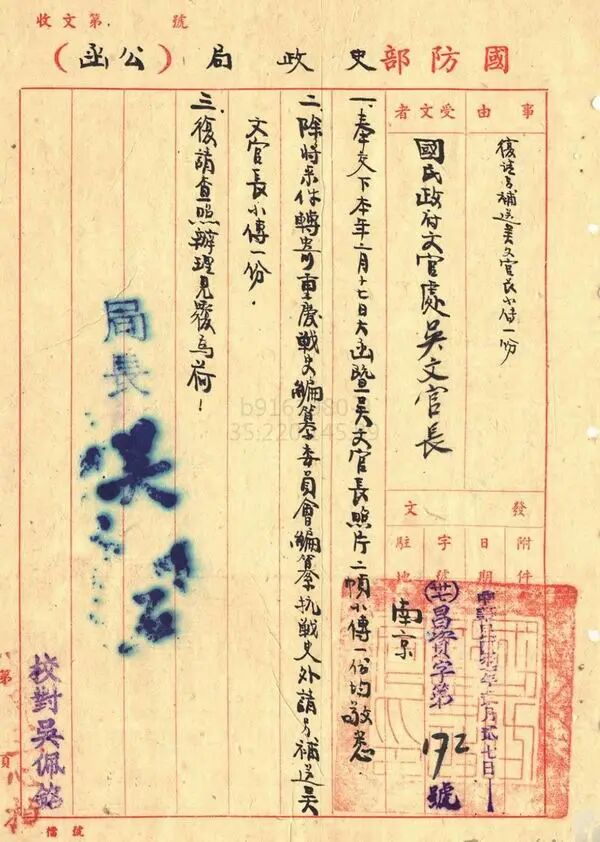 收文第 號
國防部史政局（公函）
事由
復請另補送吳文官長小傳一份
受文者
國民政府文官處吳文官長
發文
附件
日期
中華民國卅七年 月貳七日
字號
(卅七)昌資字第172號
駐地
南京
一、奉交下本年二月十七日大函暨吳文官長照片二幀小傳一份均敬悉
二、除將来件轉寄重慶戰史編纂委員會編纂抗戰史外請另補送吳
文官長小傳一份．
三、復請查照辦理見覆為荷！
局長 吳石
校對吳佩銘
第
頁
檔號